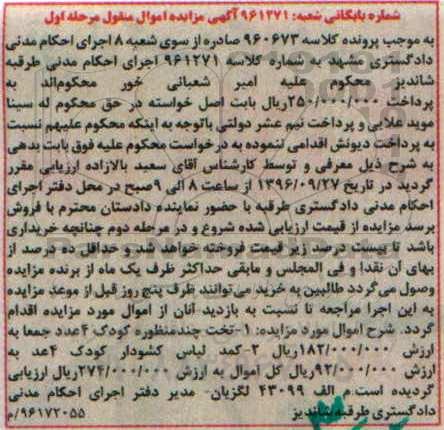 شماره بایگانی شعبه: ۹۶۱۲۷۱ آگهی مزایده اموال منقول مرحله اول
به موجب پرونده کلاسه ۹۶۰۶۷۳ صادره از سوی شعبه ۸ اجرای احکام مدنی
دادگستری مشهد به شماره کلاسه ۹۶۱۲۷۱ اجرای احکام مدنی طرقبه
شاندیز محکوم علیه امیر شعبانی خور محکوم‌اند به
پرداخت ۲۵۰/۰۰۰/۰۰۰ریال بابت اصل خواسته در حق محکوم له سینا
موید علایی و پرداخت نیم عشر دولتی باتوجه به اینکه محکوم علیهم نسبت
به پرداخت دیونش اقدامی ننموده به درخواست محکوم علیه فوق بابت بدهی
به شرح ذیل معرفی و توسط کارشناس آقای سعید بالازاده ارزیابی مقرر
گردید در تاریخ ۱۳۹۶/۰۹/۲۷ از ساعت ۸ الی ۹صبح در محل دفتر اجرای
احکام مدنی دادگستری طرقبه با حضور نماینده دادستان محترم با فروش
برسد مزایده از قیمت ارزیابی شده شروع و در مرحله دوم چنانچه خریداری
باشد تا بیست درصد زیر قیمت فروخته خواهد شد و حداقل ده درصد از
بهای آن نقدا و فی المجلس و مابقی حداکثر ظرف یک ماه از برنده مزایده
وصول می‌گردد طالبین به خرید می‌توانند ظرف پنج روز قبل از موعد مزایده
به این اجرا مراجعه تا نسبت به بازدید آنان از اموال مورد مزایده اقدام
گردد. شرح اموال مورد مزایده: ۱-تخت چندمنظوره کودک ۴عدد جمعا به
ارزش ۱۸۲/۰۰۰/۰۰۰ریال ۲-کمد لباس کشودار کودک ۴عد به
ارزش ۹۲/۰۰۰/۰۰۰ریال کل اموال به ارزش ۲۷۴/۰۰۰/۰۰۰ریال ارزیابی
گردیده است.م الف ۴۳۰۹۹ لگزیان- مدیر دفتر اجرای احکام مدنی
دادگستری طرقبه شاندیز ۹۶۱۷۲۰۵۵/م